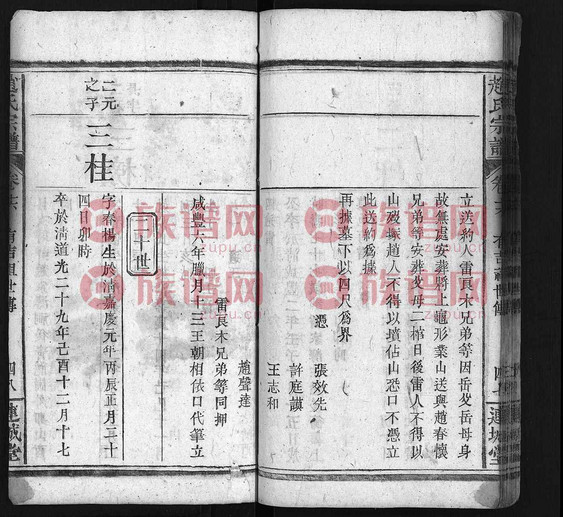 趙氏宗譜
立送約人雷良木兄弟等因岳父岳母身
故無處安葬將上龜形業山送與趙春懷
兄弟等安葬父母二棺日後雷人不得以
山殘塚趙人不得以墳佔山恐口不憑立
此送約爲據
再據墓下以四尺爲界
憑
張效先
許庭謨
王志和
趙聲達
雷良木兄弟等同押
咸豐六年臘月十三王朝相依口代筆立
二十世
二元之子
三桂
字春楊生於清嘉慶元年丙辰正月二十
四日卯時
卒於清道光二十九年己酉十二月十七
氏宗譜
四八
連城堂
族譜网
zupu.cn